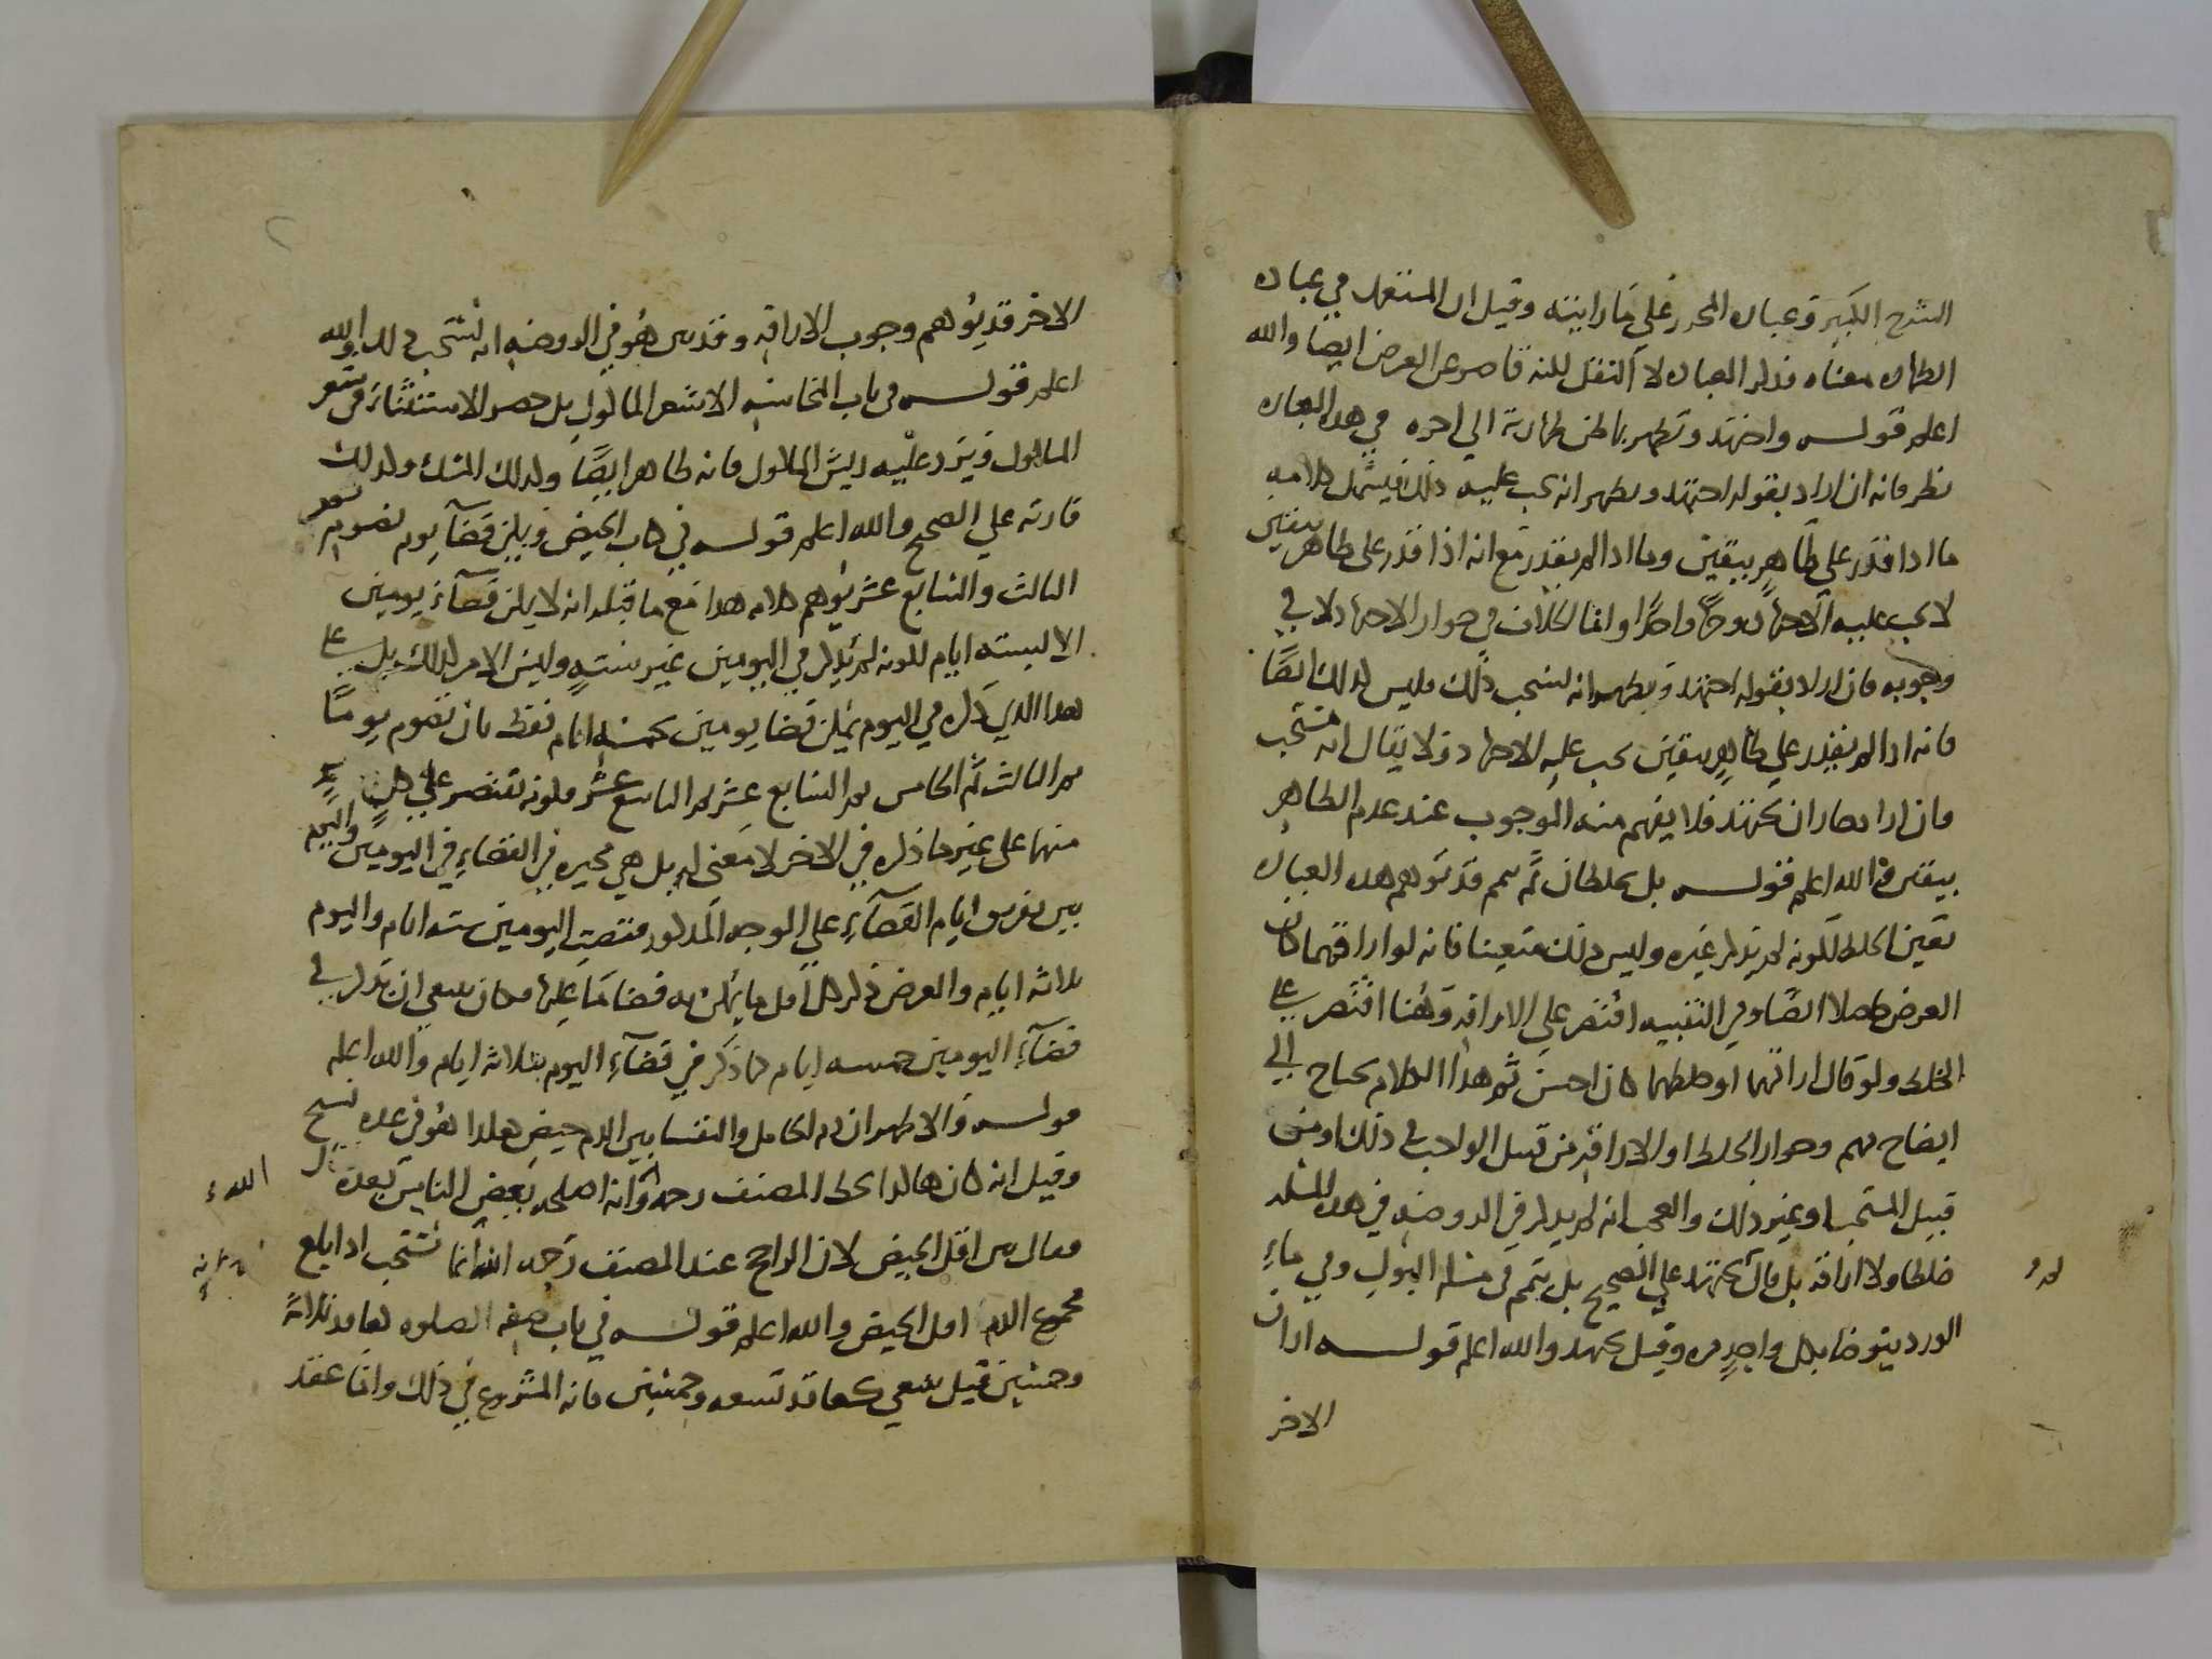 الشرح الكبير وعبارة المحرر على ما رأيته وقيل ان المستعمل في عبارة
الطهارة معناه فذكر العبارة لا النفل لكنه قاصر عن الغرض ايضا والله
اعلم قوله واجتهد وتطهر بما ظن طهارته الى اخره في هذه العبارة
نظر فانه ان اراد بقوله اجتهد وتطهر انه يجب عليه ذلك فيشمل كلامه
ما اذا قدر على طاهر بيقين وما اذا لم يقدر مع انه اذا قدر على طاهر بيقين
لا يجب عليه الاجتهاد وجها واحدا وانما الخلاف في جواز الاجتهاد لا في
وجوبه فان اراد بقوله اجتهد وتطهر انه يستحب ذلك فليس كذلك ايضا
فانه اذا لم يقدر على طاهر بيقين يجب عليه الاجتهاد ولا يقال انه مستحب
وان اراد جاز ان يجتهد فلا يفهم منه الوجوب عند عدم الطاهر
بيقين والله اعلم قوله بل يخلطان ثم يتيمم قد توهم هذه العبارة
تعين الخلط لكونه لم يذكر غيره وليس ذلك متعينا فانه لو اراقهما كان
الغرض حاصلا ايضا وفي التنبيه اقتصر على الاراقة وهنا اقتصر على
الخلط ولو قال اراقهما او خلطهما كان احسن ثم هذا الكلام يحتاج الى
ايضاح مهم وجواز الخلط او الاراقة من قبيل الواجب في ذلك او من
قبيل المستحب او غير ذلك والعجب انه لم يذكر في الروضة في هذه المسئلة
خلطا ولا اراقة بل قال يجتهد على الصحيح بل يتيمم في مسئلة البول وفي ماء
الورد يتوضا بكل واحد مرة وقيل يجتهد والله اعلم قوله اراق
الاخر
الاخر قد يوهم وجوب الاراقة وقد بين هو في الروضة انه يستحب له والله
اعلم قوله في باب النجاسة الا شعر المأكول بل حصر الاستثناء في شعر
المأكول ويرد عليه ريش المأكول فانه طاهر ايضا وكذلك المسك وكذلك
فارته على الصحيح والله اعلم قوله في باب الحيض ويمكن قضاء يوم بصوم يوم
الثالث والسابع عشر يوهم كلامه هذا مع ما قبله انه لا يمكن قضاء يومين
الا بستة ايام لكونه لم يذكر في اليومين غير ستة وليس الامر كذلك بل على
هذا الذي ذكره في اليوم يمكن قضا يومين بخمسة ايام فقط بان تصوم يوما
ثم الثالث ثم الخامس ثم السابع عشر ثم التاسع عشر فكونه يقتصر على كل
منهما على غير ما ذكره في الاخر لا معنى له بل هي مخيرة في القضاء في اليومين واليوم
بين تفريق ايام القضاء على الوجه المذكور فتصير اليومين ستة ايام واليوم
ثلاثة ايام والغرض ذكر كل اقل ما يمكن به قضا ما عليها فكان ينبغي ان يذكر في
قضاء اليومين خمسة ايام كما ذكر في قضاء اليوم بثلاثة ايام والله اعلم
قوله والاظهر ان دم الحامل والنقا بين الدم حيض هكذا هو في عدة نسخ
وقيل انه كان هكذا بخط المصنف رحمه الله وانه اصلحه بعض الناس بعده
فقال بين اقل الحيض لان الراجح عند المصنف رحمه الله انما يستحب اذا بلغ
مجموع الدم اقل الحيض والله اعلم قوله في باب صفة الصلوة كعاقد ثلاثة
وخمسين قيل ينبغي كعاقد تسعة وخمسين فانه المشروع في ذلك وانما عقد